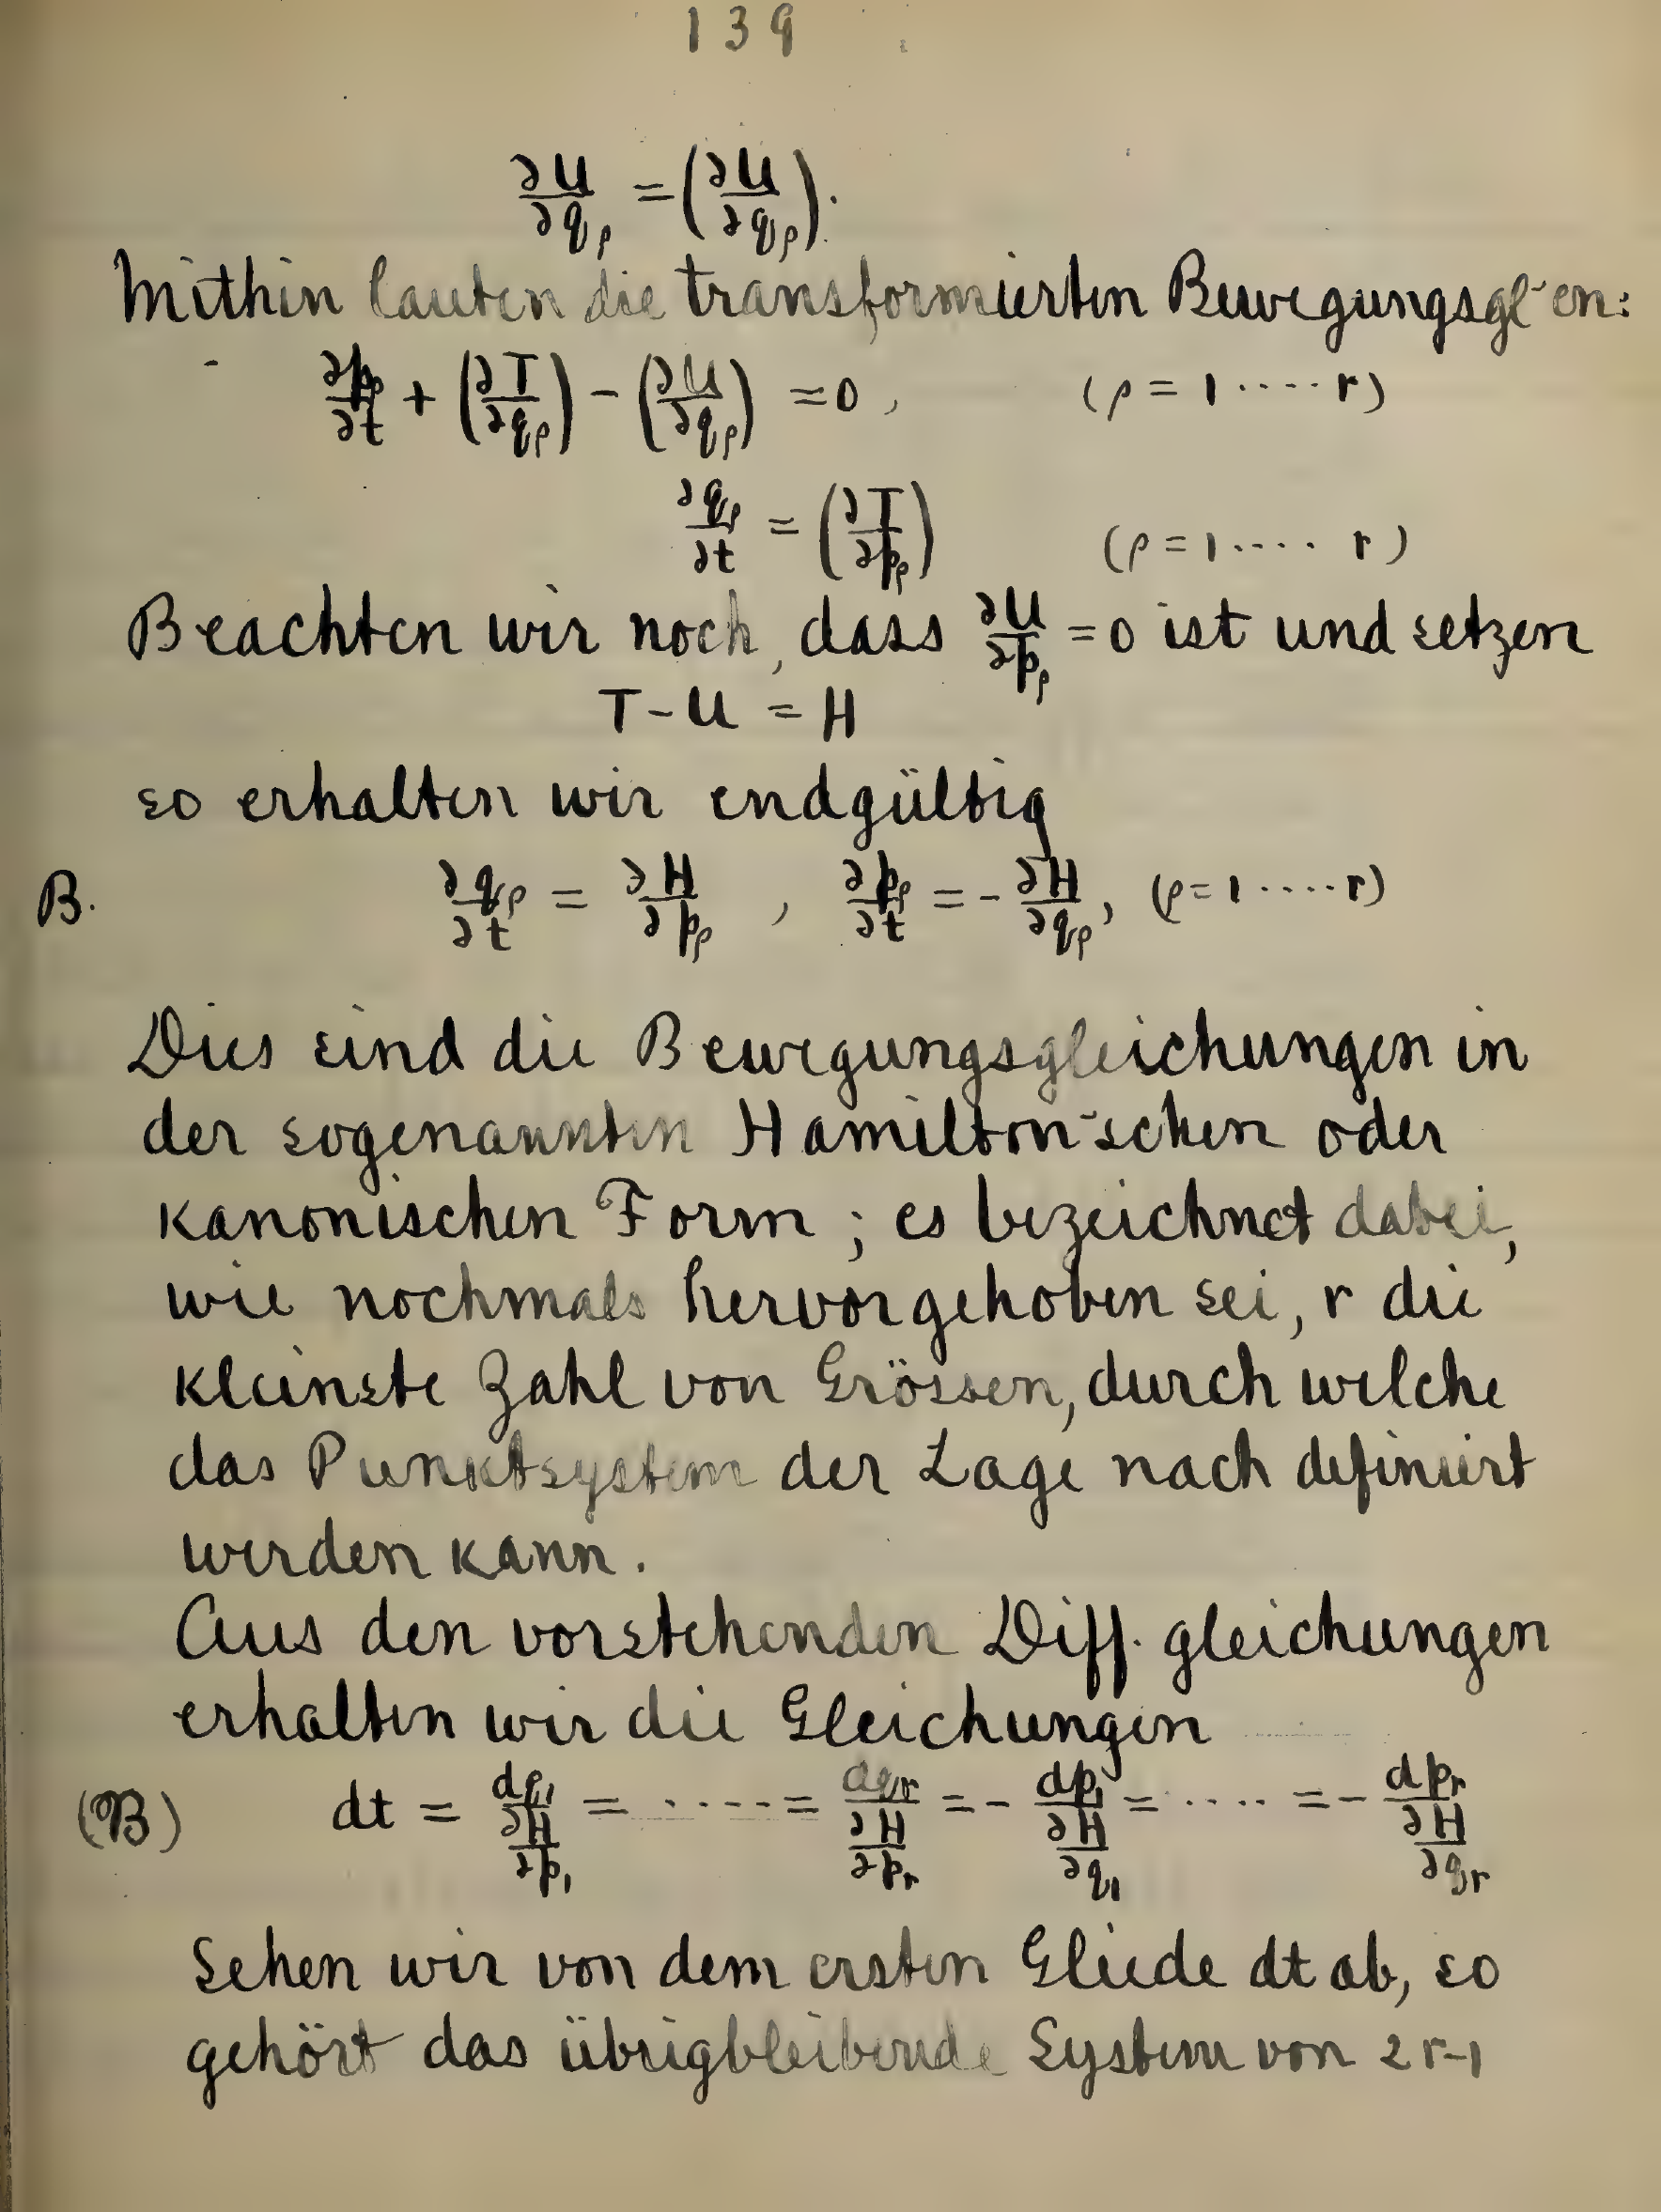 139
∂U/∂q_ρ = (∂U/∂q_ρ).
Mithin lauten die transformierten Bewegungsgl-en:
∂p_ρ/∂t + (∂T/∂q_ρ) - (∂U/∂q_ρ) = 0, (ρ = 1 ···· r)
∂q_ρ/∂t = (∂T/∂p_ρ) (ρ = 1 ···· r)
Beachten wir noch, dass ∂U/∂p_ρ = 0 ist und setzen
T - U = H
so erhalten wir endgültig
B. ∂q_ρ/∂t = ∂H/∂p_ρ , ∂p_ρ/∂t = - ∂H/∂q_ρ, (ρ = 1 ···· r)
Dies sind die Bewegungsgleichungen in
der sogenannten Hamilton'schen oder
kanonischen Form ; es bezeichnet dabei,
wie nochmals hervorgehoben sei, r die
kleinste Zahl von Grössen, durch welche
das Punktsystem der Lage nach definiert
werden kann.
Aus den vorstehenden Diff. gleichungen
erhalten wir die Gleichungen
(B) dt = dq_1/(∂H/∂p_1) = ····· = dq_r/(∂H/∂p_r) = - dp_1/(∂H/∂q_1) = ···· = - dp_r/(∂H/∂q_r)
Sehen wir von dem ersten Gliede dt ab, so
gehört das übrigbleibende System von 2r-1